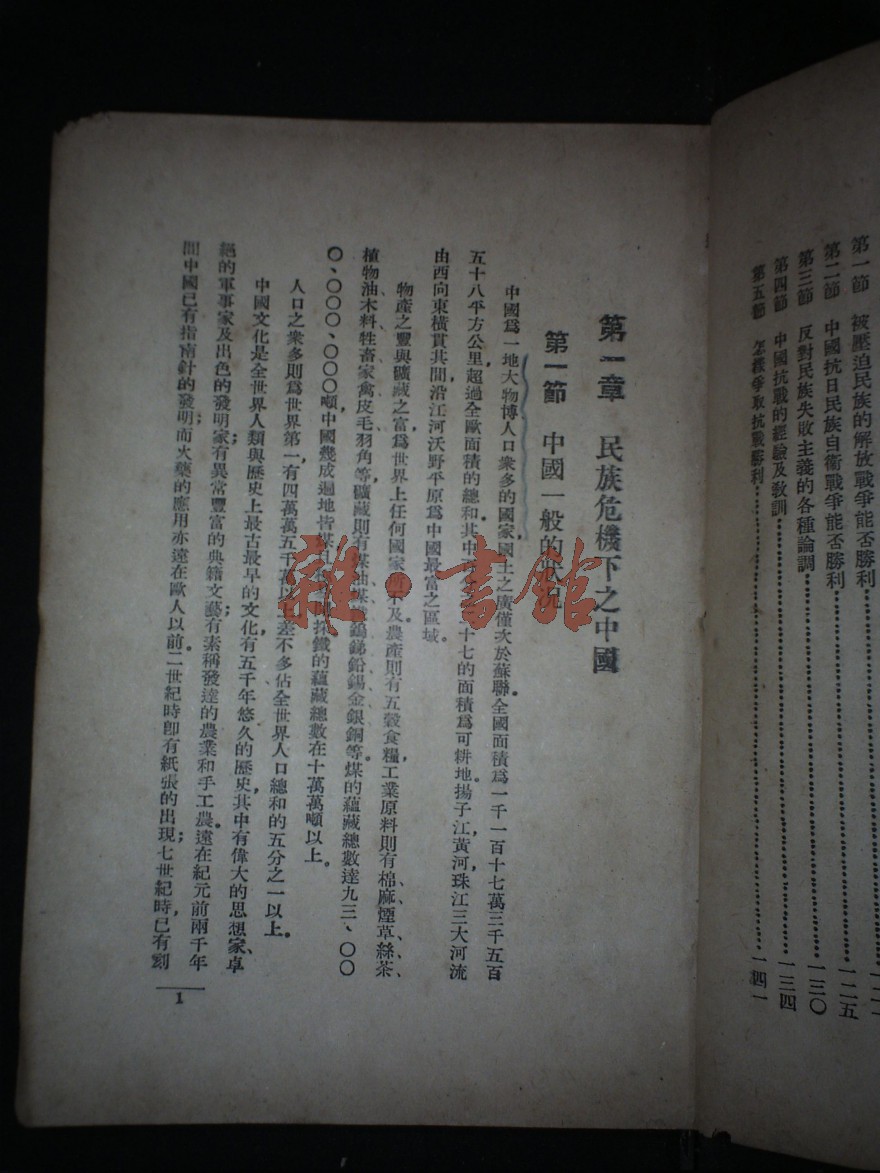 第一節 被壓迫民族的解放戰爭能否勝利
第二節 中國抗日民族自衛戰爭能否勝利……一二五
第三節 反對民族失敗主義的各種論調……一三〇
第四節 中國抗戰的經驗及敎訓……一三四
第五節 怎樣爭取抗戰勝利……一四一
第一章 民族危機下之中國
第一節 中國一般的狀況
中國爲一地大物博，人口衆多的國家國土之廣僅次於蘇聯全國面積爲一千一百十七萬三千五百
五十八平方公里，超過全歐面積的總和。其中 十七的面積爲可耕地。揚子江，黃河，珠江三大河流
由西向東橫貫其間沿江河沃野平原爲中國最富之區域。
物產之豐與礦藏之富，爲世界上任何國家所不及。農產則有五穀食糧，工業原料則有棉、麻、煙草、絲、茶、
植物油、木料、牲畜、家禽、皮毛、羽角等，礦藏則有煤油、煤、鐵、鎢、銻、鉛、錫、金、銀、銅等。煤的蘊藏總數達九三、〇〇
〇、〇〇〇、〇〇〇噸，中國幾成遍地皆煤 鐵的蘊藏總數在十萬萬噸以上。
人口之衆多則爲世界第一，有四萬萬五千萬以上，差不多佔全世界人口總和的五分之一以上。
中國文化是全世界人類與歷史上最古最早的文化，有五千年悠久的歷史，其中有偉大的思想家、卓
絕的軍事家及出色的發明家；有異常豐富的典籍文藝；有素稱發達的農業和手工農。遠在紀元前兩千年
間中國已有指南針的發明；而火藥的應用亦遠在歐人以前。二世紀時卽有紙張的出現，七世紀時已有刻
1
雜·書館